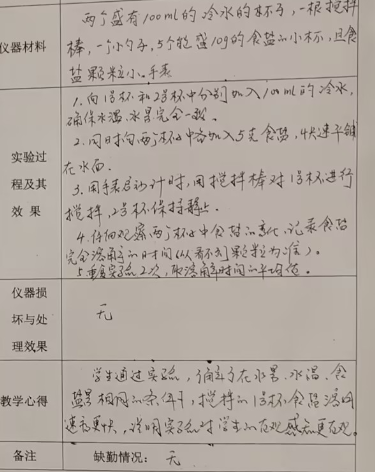 两个盛有100ml的冷水的杯子，一根搅拌
仪器材料
棒，一个小勺子，5个装盛10g的食盐的小杯，且食
盐颗粒小、手表
1.向1号杯和2号杯中分别加入100ml的冷水，
确保水温、水量完全一致。
2.同时向两个杯中各加入5克食盐，快速平铺
实验过
在水面.
程及其
3.用手表启动计时，用搅拌棒对1号杯进行
效 果
搅拌，2号杯保持静止.
4.仔细观察两个杯中食盐的变化，记录食盐
完全溶解的时间(以看不到颗粒为准)。
5.重复实验2次，取溶解时间的平均值。
仪器损
坏与处
无
理效果
学生通过实验，确定了在水量、水温、食
盐量相同的条件下，搅拌的1号杯食盐溶解
教学心得
速度更快，说明实验对学生的直观感知更直观。
备注
缺勤情况： 无